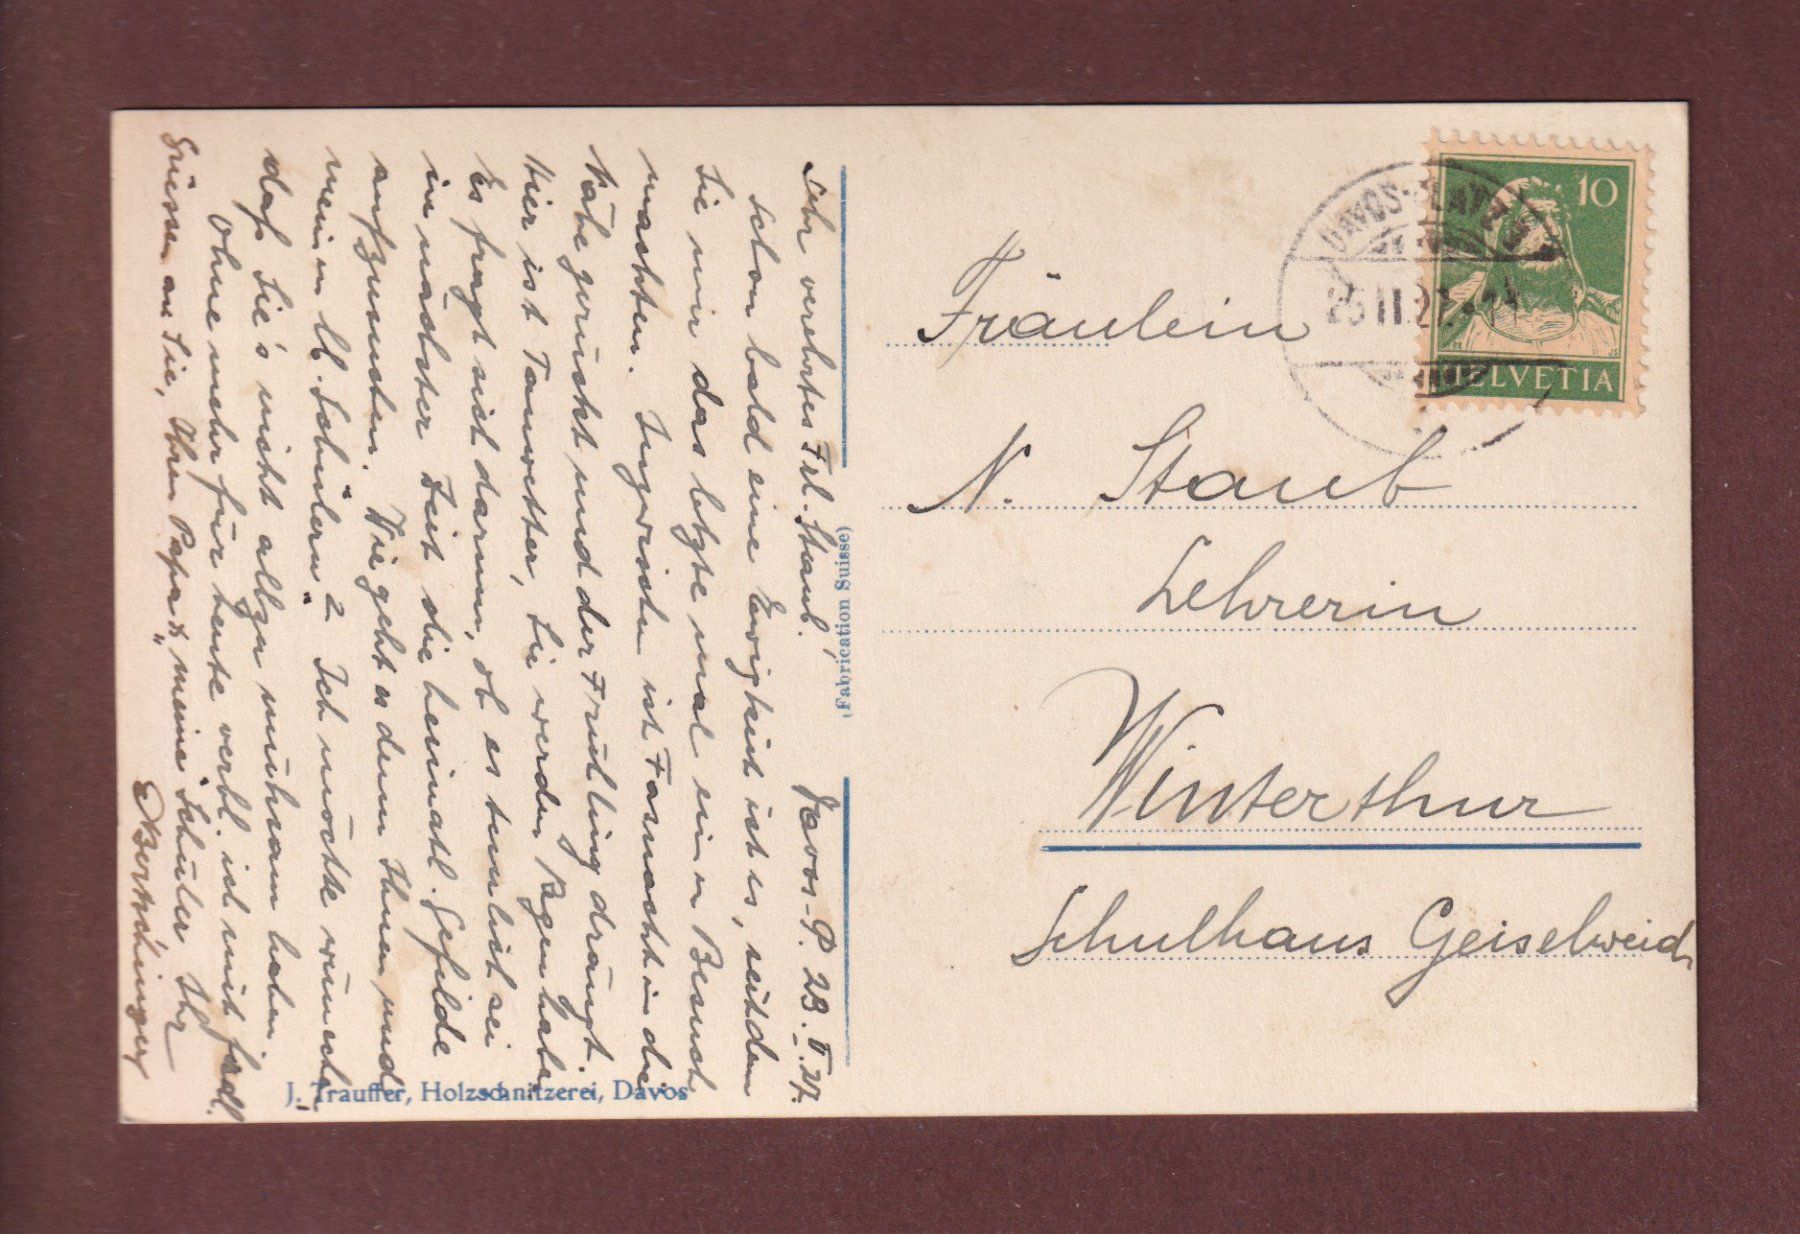 Davos-P. 23. II. 27.
Sehr verehrtes Frl. Staub!
Schon bald eine Ewigkeit ist es, seitdem
Sie mir das letzte mal einen Besuch
machten. Inzwischen ist Fasnacht in die
Nähe gerückt und der Frühling drängt.
Hier ist Tauwetter, Sie werden Regen haben
Es fragt sich darum, ob es tunlich sei
in nächster Zeit die heimatl. Gefilde
aufzusuchen. Wie geht es denn Ihnen und
meinen lb. Schülern? Ich möchte wünschen
daß Sie's nicht allzu mühsam haben.
Ohne mehr für heute verbl. ich mit frdl.
Grüssen an Sie, Ihren Papa & "meine" Schüler Ihr
E Bertschinger
(Fabrication Suisse)
J. Trauffer, Holzschnitzerei, Davos
DAVOS-PLATZ
II.27.
10
HELVETIA
Fräulein
N. Staub
Lehrerin
Winterthur
Schulhaus Geiselweid